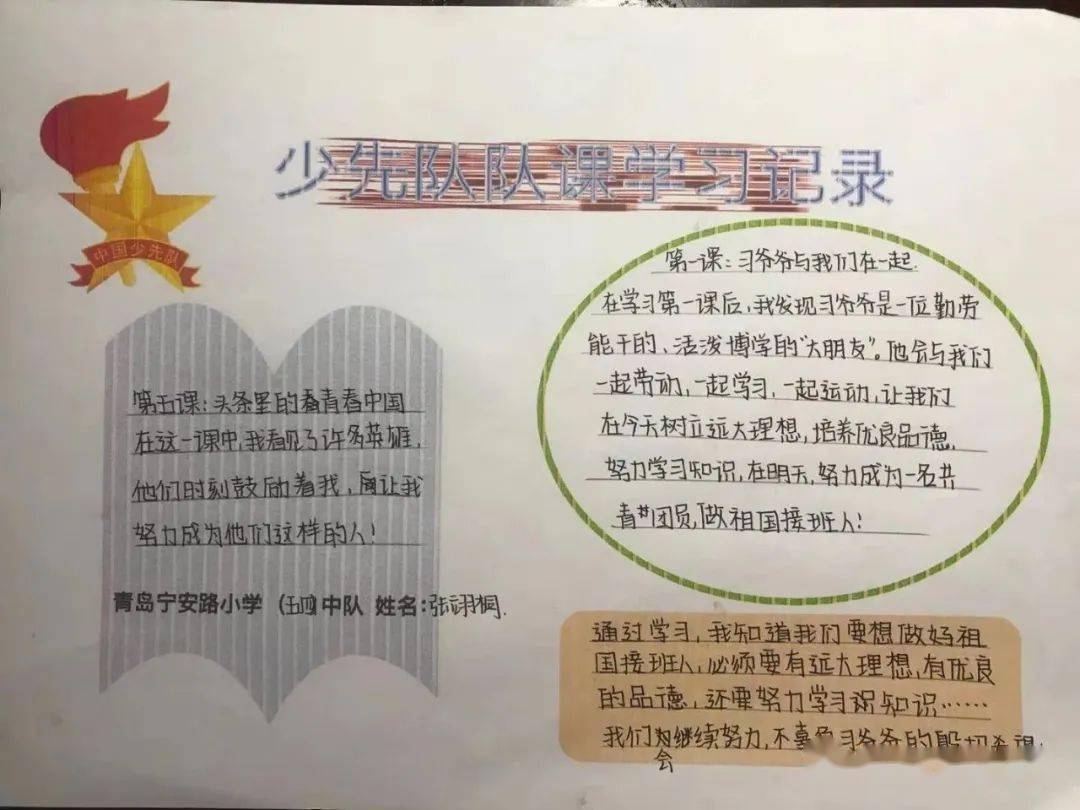 少先队队课学习记录
中国少先队
第五课：头条里的看青春中国
在这一课中，我看见了许多英雄，
他们时刻鼓励着我，让我
努力成为他们这样的人！
青岛宁安路小学（五四）中队 姓名：张诩桐.
第一课：习爷爷与我们在一起.
在学习第一课后，我发现习爷爷是一位勤劳
能干的、活泼博学的“大朋友”。他会与我们
一起劳动，一起学习，一起运动，让我们
在今天树立远大理想，培养优良品德，
努力学习知识，在明天，努力成为一名共
青团员，做祖国接班人！
通过学习，我知道我们要想做好祖
国接班人，必须要有远大理想，有优良
的品德，还要努力学习知识……
我们会继续努力，不辜负习爷爷的殷切希望